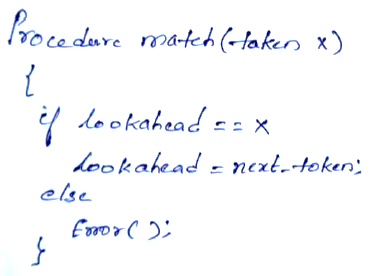 Procedure match(token x)
{
if lookahead == x
lookahead = next-token;
else
Error();
}